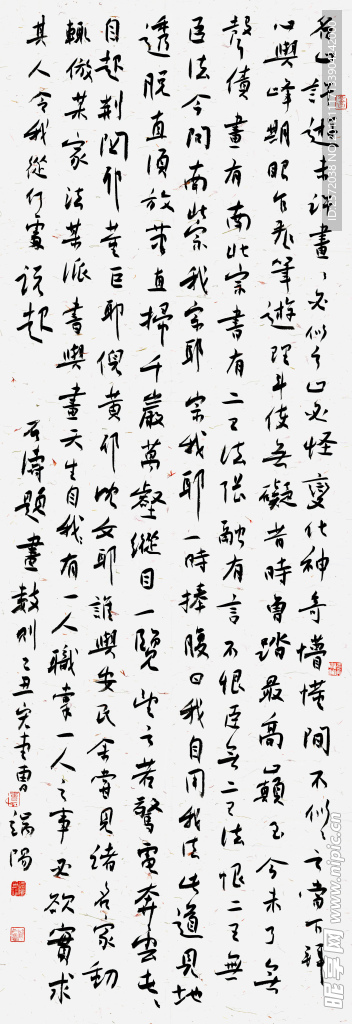 名山許遊未許畫、必似之山必怪變化神奇懵懂間不似、之當下拜
心與峰期眼乍飛筆遊理斗使無礙昔時曾踏最高巔至今未了無
聲債畫有南北宗書有二王法張融有言不恨臣無二王法恨二王無
臣法今問南北宗我宗耶宗我耶一時捧腹曰我自用我法此道見地
透脫直須放筆直掃千巖萬壑縱目一覽望之若驚電奔雲屯、
自起荊關耶董巨耶倪黃耶沈文耶誰與安民余嘗見諸名家動
輒倣某家法某派書與畫天生自我有一人職掌一人之事又欲實求
其人令我從何處說起
石濤題畫數則乙丑 曹端陽
昵享网 www.nipic.cn